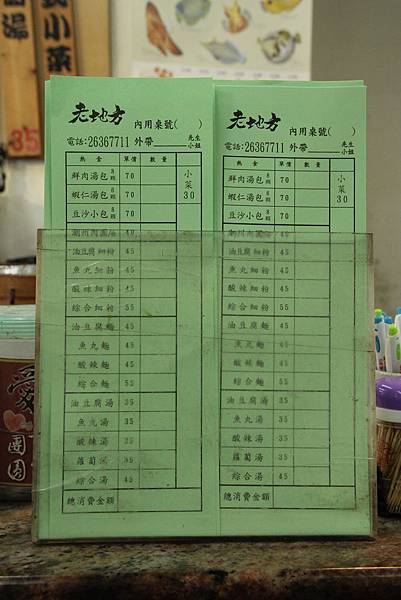 小菜
35
湯
老地方 內用桌號( )
電話:26367711 外帶 先生 小姐
熱食 單價 數量
鮮肉湯包 8顆 70
蝦仁湯包 8顆 70
豆沙小包 8顆 70
小菜 30
油豆腐細粉 45
魚丸細粉 45
酸辣細粉 45
綜合細粉 55
油豆腐麵 45
魚丸麵 45
酸辣麵 45
綜合麵 55
油豆腐湯 35
魚丸湯 35
酸辣湯 35
蘿蔔湯 35
綜合湯 45
總消費金額
老地方 內用桌號( )
電話:26367711 外帶 先生 小姐
熱食 單價 數量
鮮肉湯包 8顆 70
蝦仁湯包 8顆 70
豆沙小包 8顆 70
小菜 30
潮州肉圓 40
油豆腐細粉 45
魚丸細粉 45
酸辣細粉 45
綜合細粉 55
油豆腐麵 45
魚丸麵 45
酸辣麵 45
綜合麵 55
油豆腐湯 35
魚丸湯 35
酸辣湯 35
蘿蔔湯 45
綜合湯 45
總消費金額
團圓